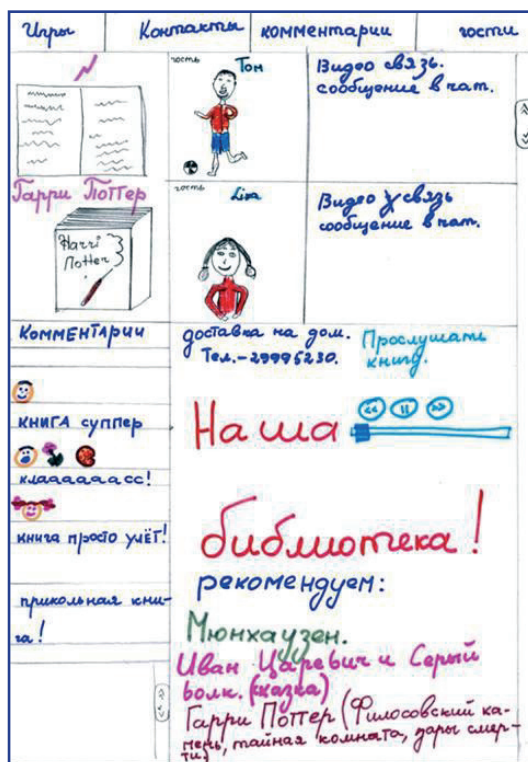 Игры Контакты комментарии гости
гость Том
Видео связь.
сообщение в чат.
Гарри Поттер
Harri
Потter
гость Liza
Видео связь
сообщение в чат.
комментарии
книга суппер
клааааааасс!
книга просто улёт!
прикольная кни-
га!
доставка на дом.
Тел.-29995230.
Прослушать
книгу.
Наша
библиотека!
рекомендуем:
Мюнхаузен.
Иван Царевич и Серый
волк. (сказка)
Гарри Поттер (Филосовский ка-
мень, тайная комната, дары смер-
ти)